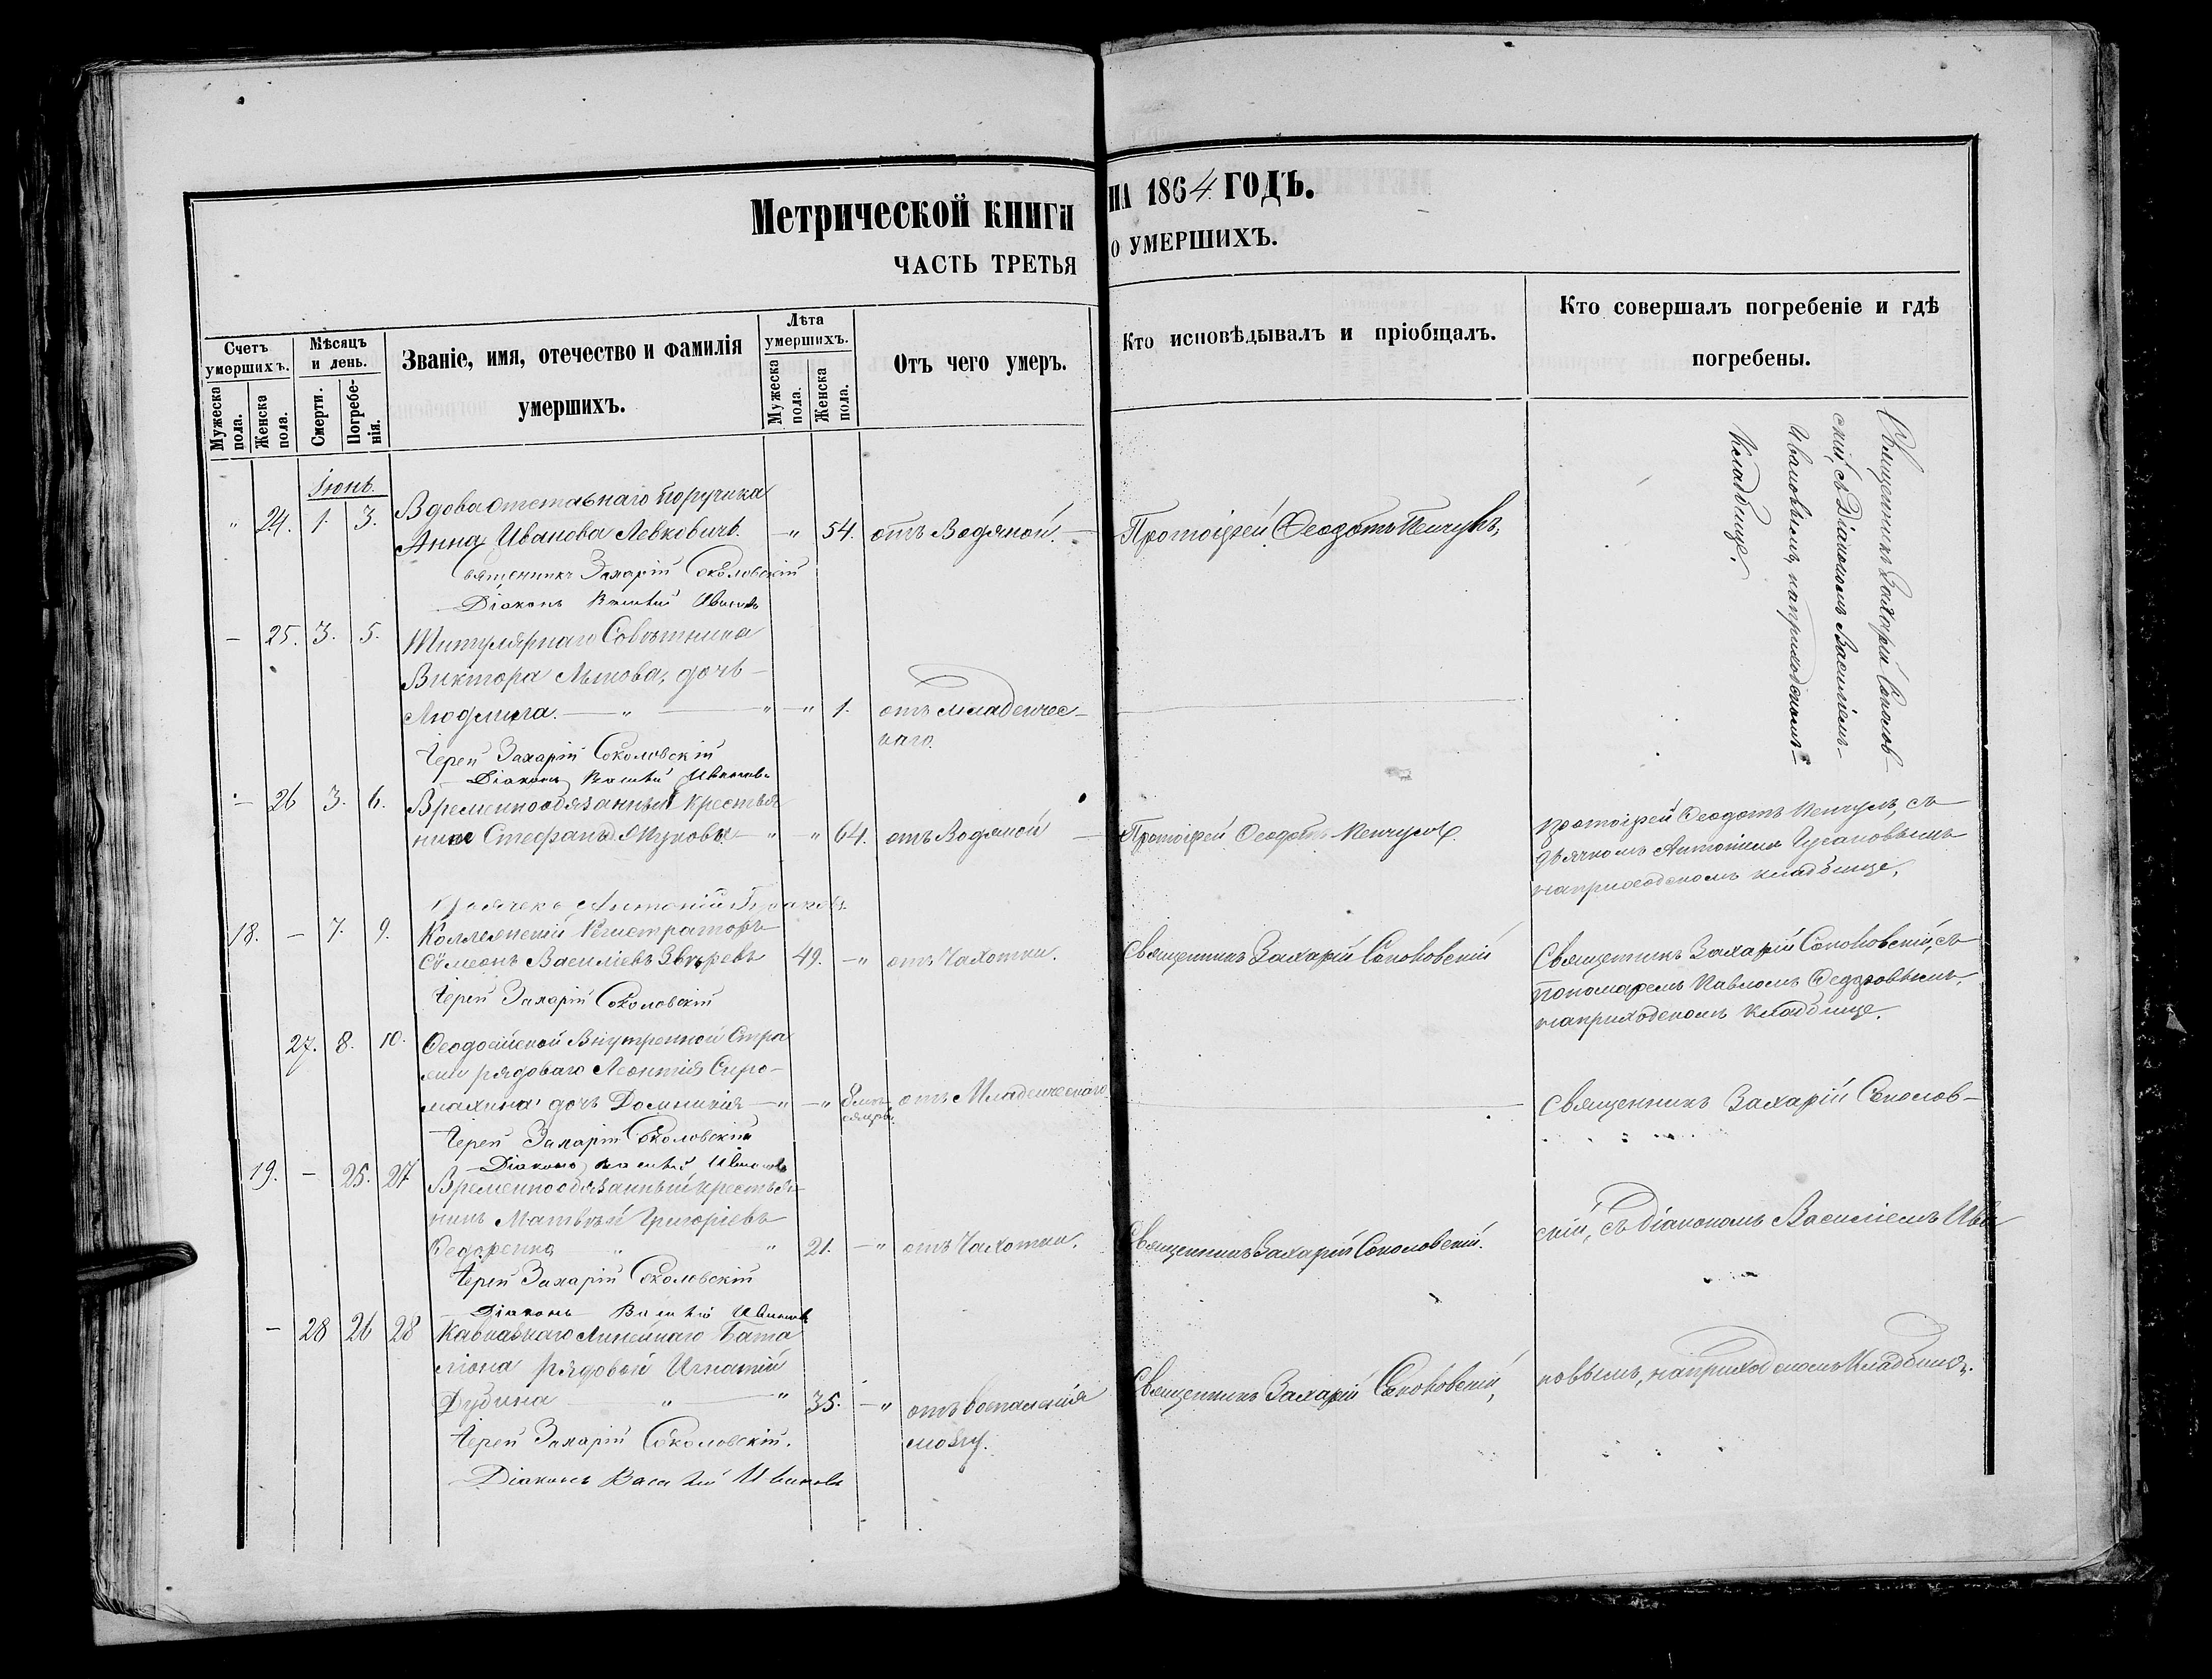 Метрической книги
ЧАСТЬ ТРЕТЬЯ
НА 1864 ГОДЪ.
О УМЕРШИХЪ.
Счетъ умершихъ.
Мужеска пола.
Женска пола.
Мѣсяцъ и день.
Смерти.
Погребенія.
Званіе, имя, отечество и фамилія
умершихъ.
Лѣта умершихъ.
Мужеска пола.
Женска пола.
Отъ чего умеръ.
Кто исповѣдывалъ и пріобщалъ.
Кто совершалъ погребеніе и гдѣ
погребены.
Іюнь.
Вдова отставнаго Поручика
" 24. 1. 3. Анна Иванова Левковичъ. " 54. отъ Водяной. Протоіерей Ѳеодотъ
Священникъ Захарій Соколовскій
Діаконъ Василій Ивановъ
Священникъ Захарій Соколов-
скій, съ Діакономъ Василіемъ
Ивановымъ, на приходскомъ
кладбище.
— 25. 3. 5. Титулярнаго Совѣтника
Виктора дочь
Людмила. — " — " — " 1. отъ младенчес-
каго.
Іерей Захарій Соколовскій
Діаконъ Василій Ивановъ
— 26 3. 6. Временнообязанный крестья
нинъ Стефанъ " — " 64. отъ Водяной Протоіерей Ѳеодотъ
Протоіерей Ѳеодотъ съ
дьячкомъ Антоніемъ
на приходскомъ кладбище.
Дьячекъ Антоній
18. — 7. 9. Коллежскій Регистраторъ
Сѵмеонъ Василіевъ Звѣревъ 49. — " отъ Чахотки. Священникъ Захарій Соколовскій
Іерей Захарій Соколовскій
Священникъ Захарій Соколовскій, съ
пономаремъ Павломъ Ѳедоровымъ,
на приходскомъ кладбище.
27. 8. 10. Ѳеодосійской Внутренной Стра
жи рядоваго Леонтія Сиро-
махина дочь Домникія — " — " 8 мѣ-
сяцевъ. отъ Младенческаго
Іерей Захарій Соколовскій
Діаконъ Василій Ивановъ
Священникъ Захарій Соколов-
19. — 25. 27 Временнообязанный крестья-
нинъ Матвѣй Григоріевъ
Ѳедоренко " " 21. — " отъ Чахотки. Священникъ Захарій Соколовскій.
Іерей Захарій Соколовскій
Діаконъ Василій Ивановъ
скій, съ Діакономъ Василіемъ Ива
— 28 26 28 Кавказнаго Линейнаго Бата
ліона рядовый Игнатій
Дубина — " — " 35. — " отъ воспаленія
мозгу.
Священникъ Захарій Соколовскій,
новымъ, на приходскомъ Кладбищѣ.
Іерей Захарій Соколовскій.
Діаконъ Василій Ивановъ